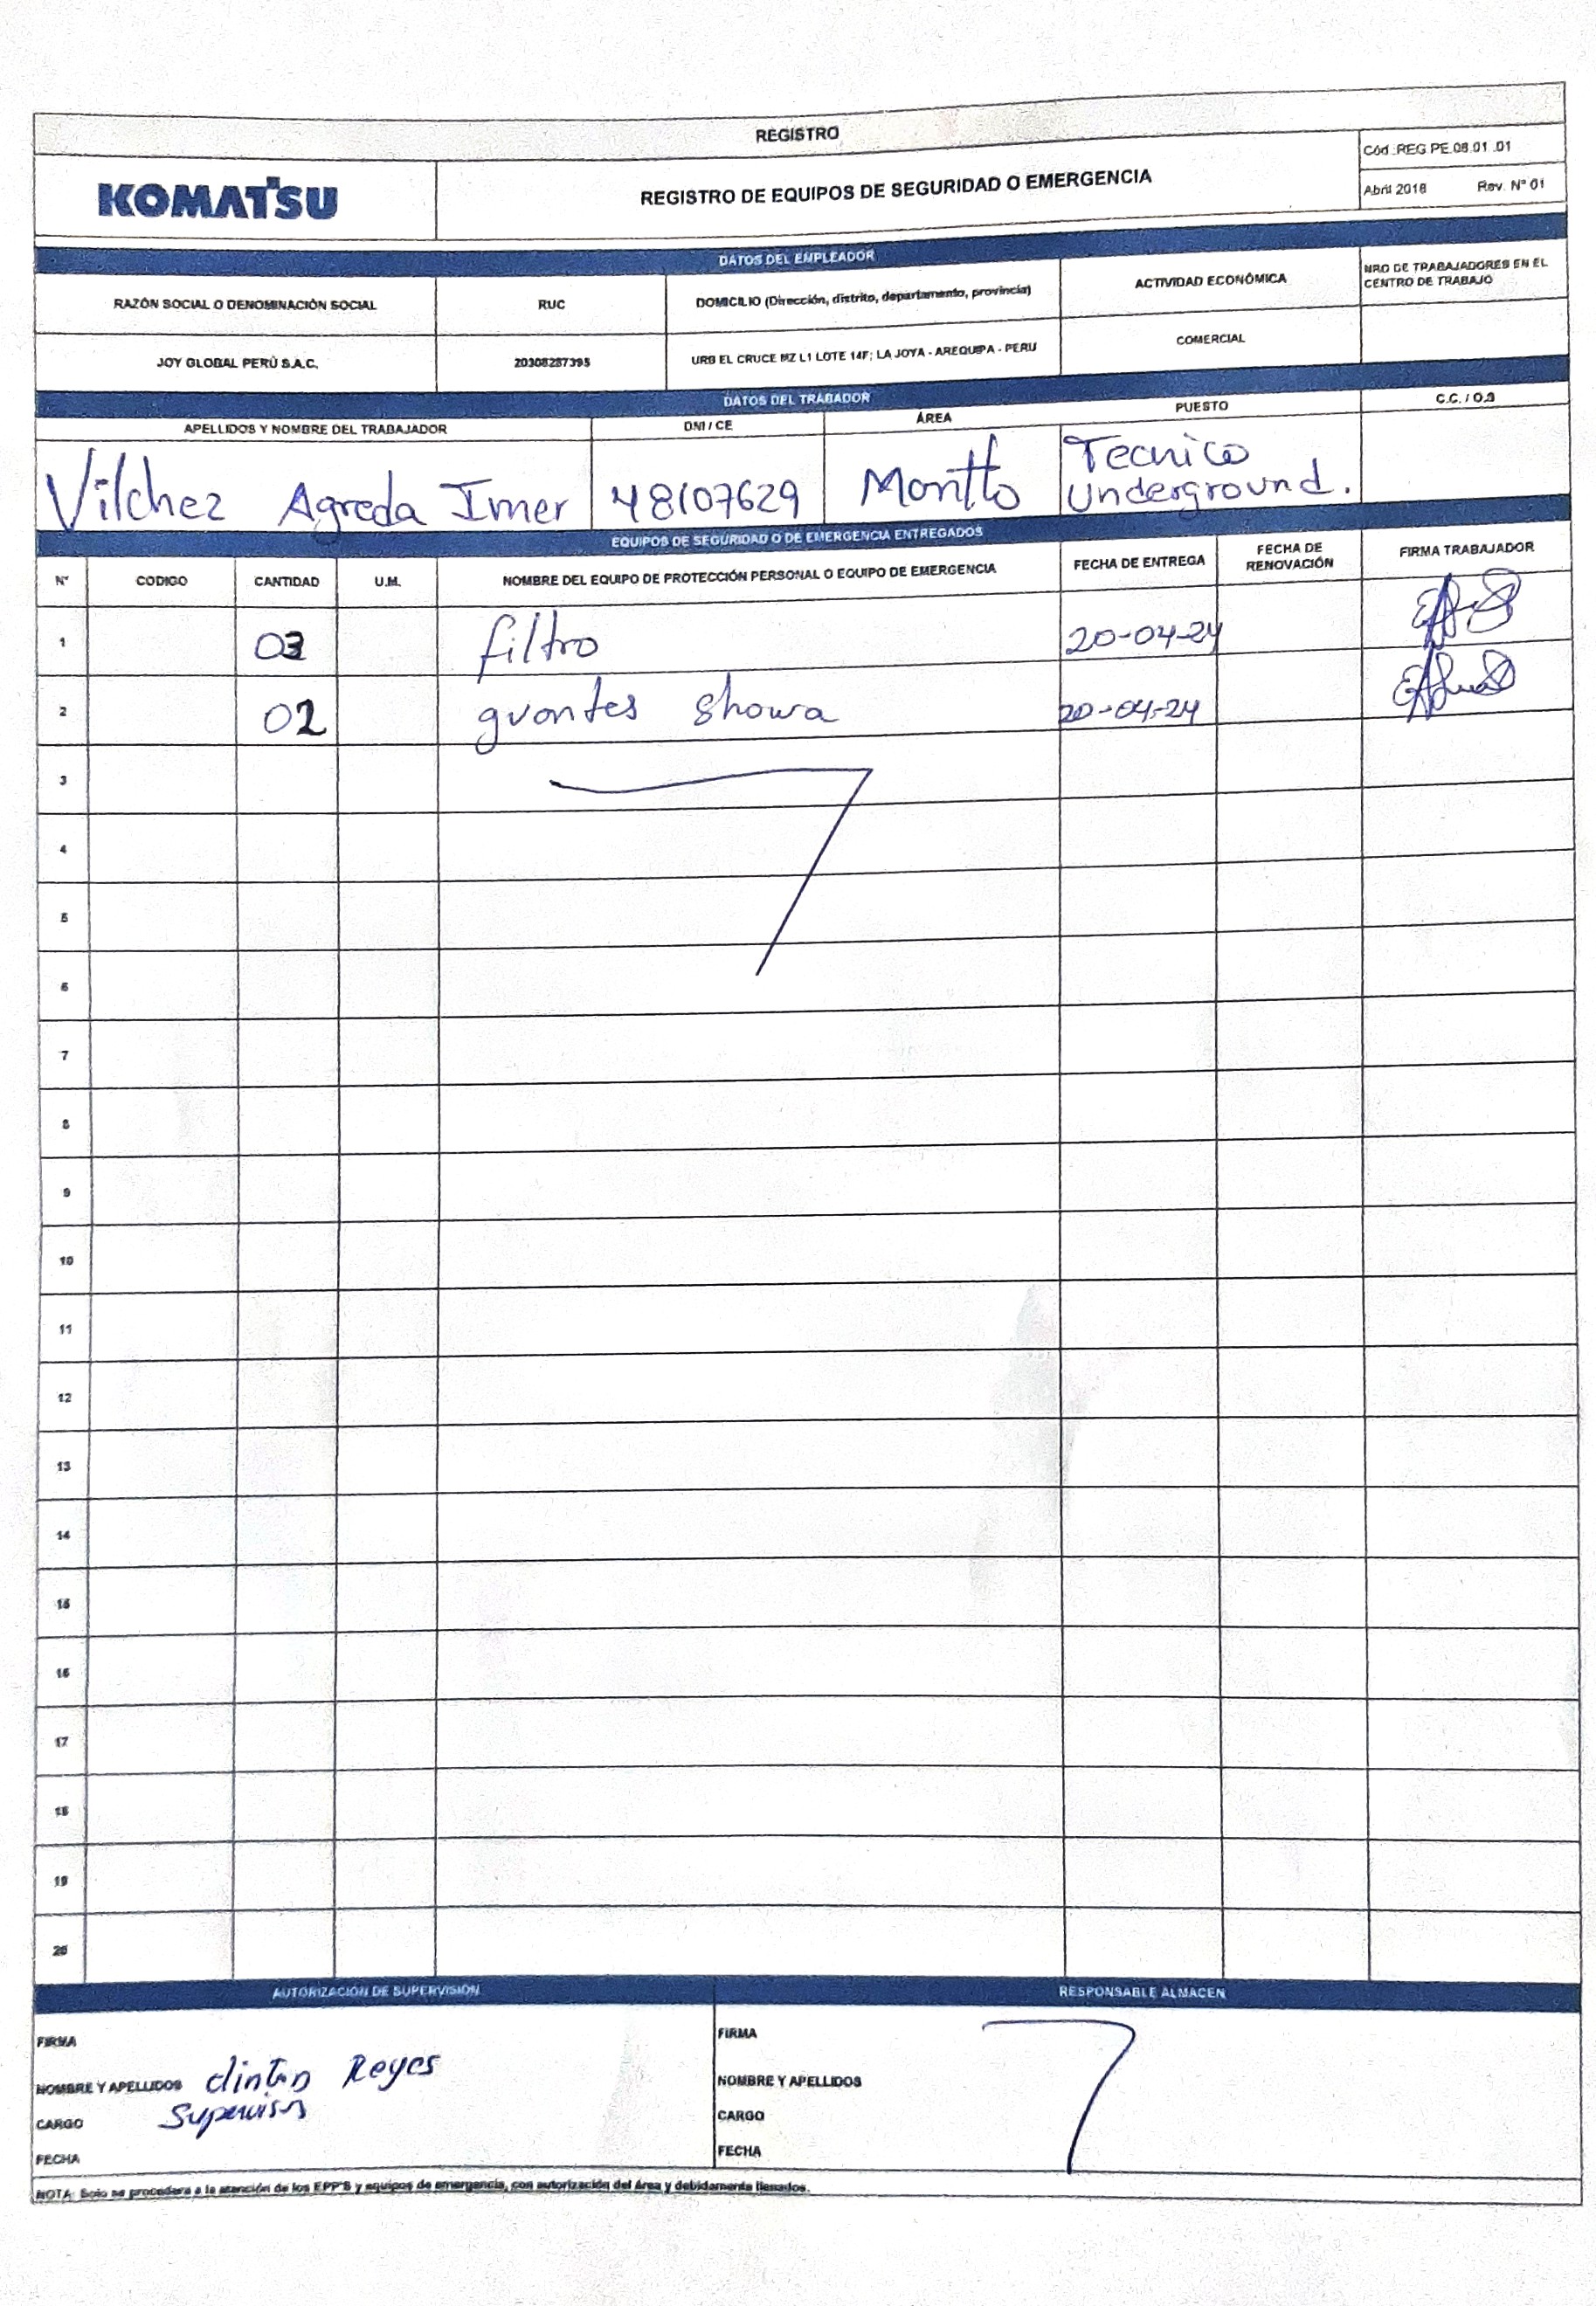 REGISTRO
KOMATSU
REGISTRO DE EQUIPOS DE SEGURIDAD O EMERGENCIA
Cód.:REG PE.08.01 .01
Abril 2018 Rev. N° 01
DATOS DEL EMPLEADOR
RAZÓN SOCIAL O DENOMINACIÓN SOCIAL RUC DOMICILIO (Dirección, distrito, departamento, provincia) ACTIVIDAD ECONÓMICA NRO DE TRABAJADORES EN EL CENTRO DE TRABAJO
JOY GLOBAL PERÚ S.A.C. 20308287395 URB EL CRUCE MZ L1 LOTE 14F; LA JOYA - AREQUIPA - PERU COMERCIAL
DATOS DEL TRABADOR
APELLIDOS Y NOMBRE DEL TRABAJADOR DNI / CE ÁREA PUESTO C.C. / O.S
Vilchez Agreda Imer 48107629 Montto Tecnico Underground.
EQUIPOS DE SEGURIDAD O DE EMERGENCIA ENTREGADOS
N° CODIGO CANTIDAD U.M. NOMBRE DEL EQUIPO DE PROTECCIÓN PERSONAL O EQUIPO DE EMERGENCIA FECHA DE ENTREGA FECHA DE RENOVACIÓN FIRMA TRABAJADOR
1 03 filtro 20-04-24
2 02 guantes showa 20-04-24
3
4
5
6
7
8
9
10
11
12
13
14
15
16
17
18
19
20
AUTORIZACIÓN DE SUPERVISIÓN RESPONSABLE ALMACEN
FIRMA FIRMA
NOMBRE Y APELLIDOS clinton Reyes NOMBRE Y APELLIDOS
CARGO Supervisor CARGO
FECHA FECHA
NOTA: Solo se procedera a la atención de los EPP'S y equipos de emergencia, con autorización del área y debidamente llenados.